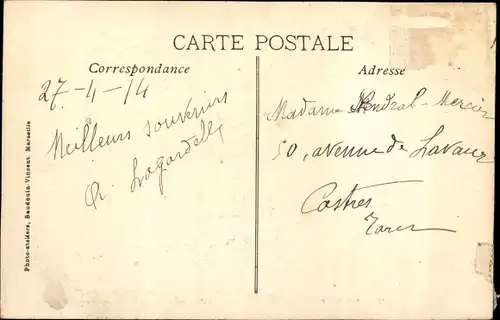 CARTE POSTALE
Correspondance
Adresse
27-4-14
Meilleurs souvenirs
Photo-ateliers, Baudouin-Vincent, Marseille
Madame Mercier
50, avenue de Lavaur
Castres
Tarn